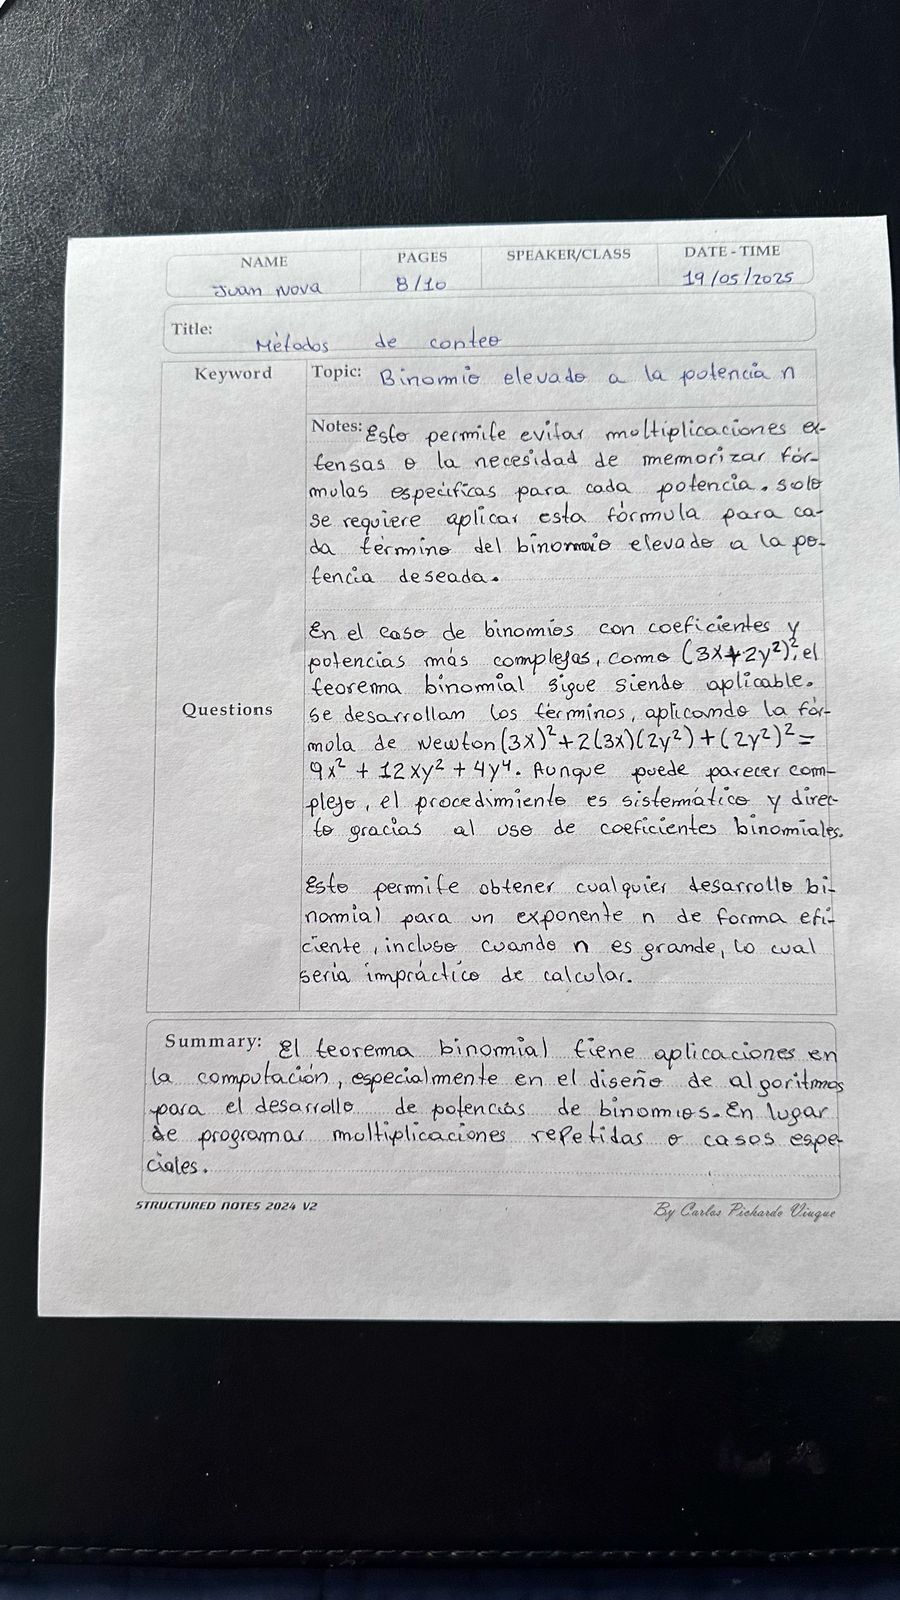 NAME PAGES SPEAKER/CLASS DATE-TIME
Juan Nova 8/10 19/05/2025
Title: Métodos de conteo
Keyword Topic: Binomio elevado a la potencia n
Notes: Esto permite evitar multiplicaciones ex-
tensas o la necesidad de memorizar fór-
mulas específicas para cada potencia. solo
se requiere aplicar esta fórmula para ca-
da término del binomio elevado a la po-
tencia deseada.
En el caso de binomios con coeficientes y
potencias más complejas, como (3x+2y²)², el
teorema binomial sigue siendo aplicable.
Questions
se desarrollan los términos, aplicando la fór-
mula de Newton (3x)²+2(3x)(2y²)+(2y²)²=
9x² + 12xy² + 4y⁴. Aunque puede parecer com-
plejo, el procedimiento es sistemático y direc-
to gracias al uso de coeficientes binomiales.
Esto permite obtener cualquier desarrollo bi-
nomial para un exponente n de forma efi-
ciente, incluso cuando n es grande, lo cual
sería impráctico de calcular.
Summary: El teorema binomial tiene aplicaciones en
la computación, especialmente en el diseño de algoritmos
para el desarrollo de potencias de binomios. En lugar
de programar multiplicaciones repetidas o casos espe-
ciales.
STRUCTURED NOTES 2024 V2 By Carlos Pichardo Viuque